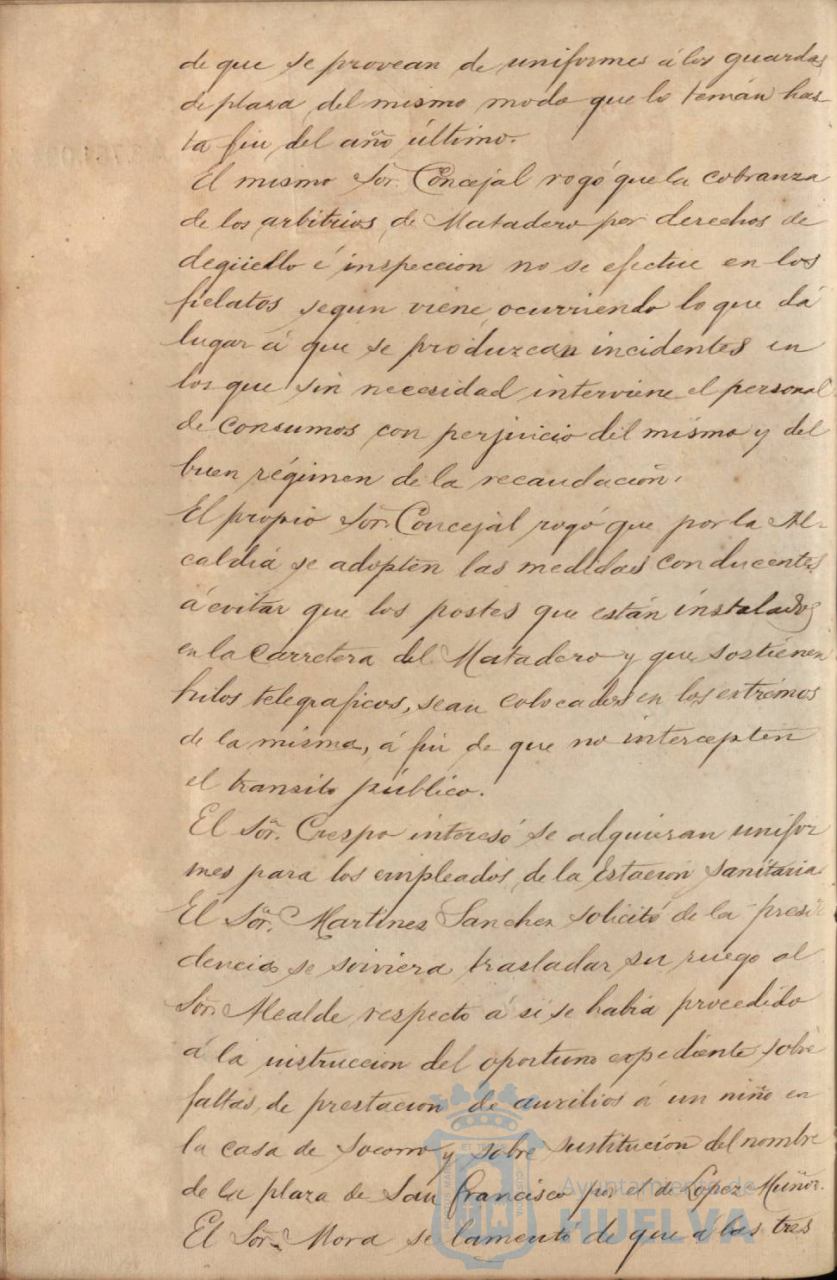 de que se provean de uniformes á los guardas
de plasa, del mismo modo que lo tenián has-
ta fin del año último.
El mismo Sor. Concejal rogó que la cobranza
de los arbitrios de Matadero por derechos de
degüello é inspeccion no se efectue en los
fielatos segun viene ocurriendo lo que dá
lugar á que se produzcan incidentes en
los que sin necesidad interviene el personal
de Consumos con perjuicio del mismo y del
buen régimen de la recaudación.
El propio Sor. Concejal rogó que por la Al-
caldiá se adopten las medidas conducentes
á evitar que los postes que están instalados
en la Carretera del Matadero y que sostienen
hilos telegraficos, sean colocados en los extremos
de la misma, á fin de que no intercepten
el transito público.
El Sor. Crespo interesó se adquieran unifor
mes para los empleados de la Estacion Sanitaria.
El Sor. Martinez Sanchez solicitó de la presi
dencia se sirviera trasladar su ruego al
Sor. Alcalde respecto á si se habia procedido
á la instruccion del oportuno expediente sobre
faltas de prestacion de auxilios á un niño en
la casa de Socorro y sobre sustitucion del nombre
de la plaza de San Francisco por el de Lopez Muñoz.
El Sor. Mora se lamentó de que á las tres
Ayuntamiento de
HUELVA